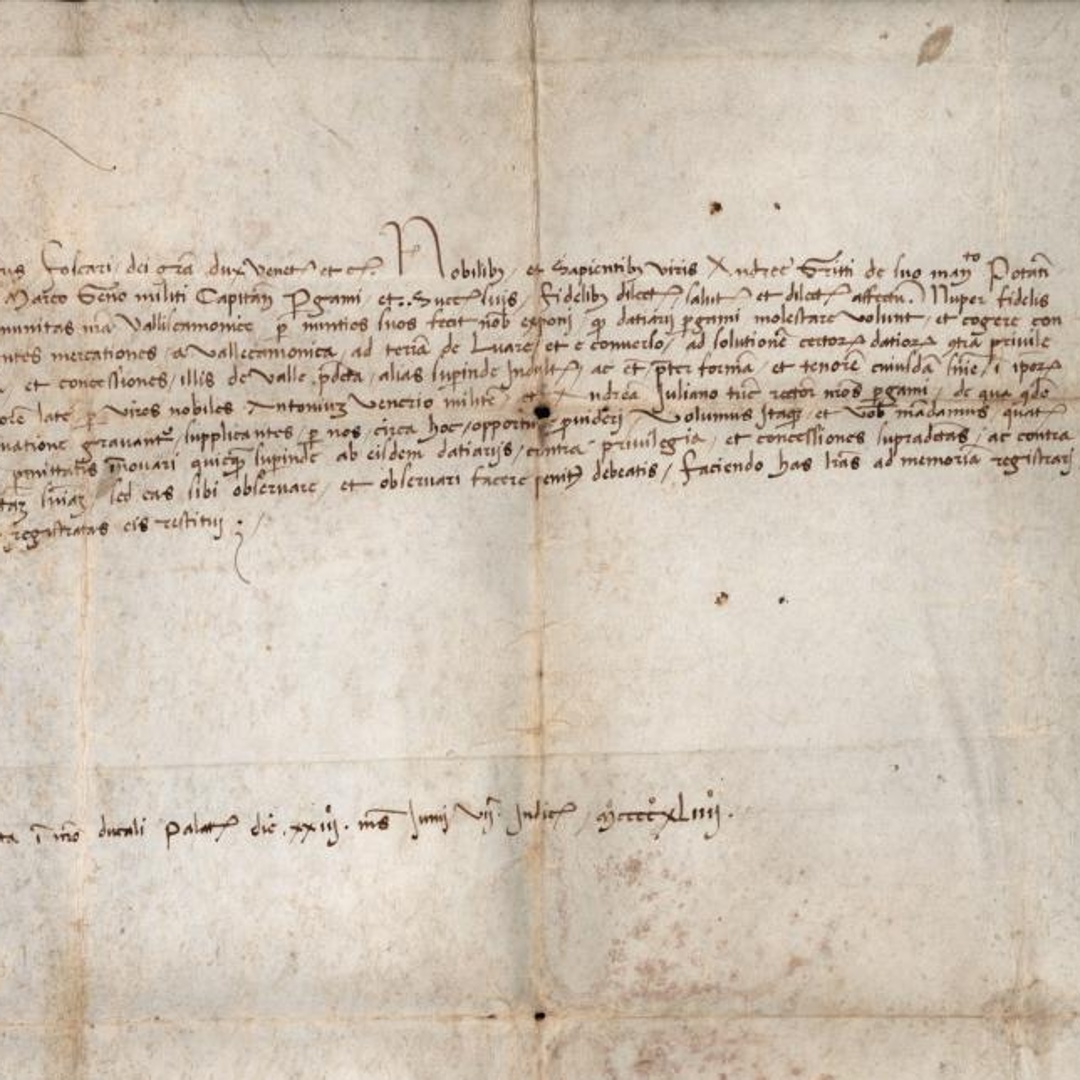 us Foscari dei gr̃a dux Venet et c̃. Nobilibȝ et Sapientibȝ viris Andree Gritti de suo mandto Potãti
Marco Zeno militi Capitañ P̱gami et Succ luis, fidelibȝ dilect salut et dilect affectũ. Nuper fidelis
munitas nr̃a Valliscamonice p̱ nuntios suos fecit nob̃ exponj qđ datiarij p̱gami molestare volunt et cogere con
ntes mercationes a Vallecamonica ad terrã de Luare et e converso ad solutionẽ certoꝝ datioꝝ contra privile
et concessiones illis de Valle p̃dcta alias supinde indult ac et p̃ter formã et tenorẽ cuiusdã sñie i ipoꝝ
orẽ late p̱ viros nobiles Antoniuȝ Venerio militẽ et Andreã Iuliano tũc rector nr̃os p̱gami de qua qđe
vatione gravant supplicantes p̱ nos circa hoc opportune pvideri Volumus Itaqȝ et vob̃ mãdamus quat
p̱mittatis ĩnovari quicq̃ supinde ab eisdem datiarijs contra privilegia et concessiones supradctas ac contra
taȝ sñiaȝ sed eas sibi observare et observari facere penitȝ debeatis faciendo has lr̃as ad memoriã registrarj
registratas eis restituj
ta ĩ nr̃o ducali Palat die xxiiij. mẽs Junij Vij Indict mccccxLiiij.